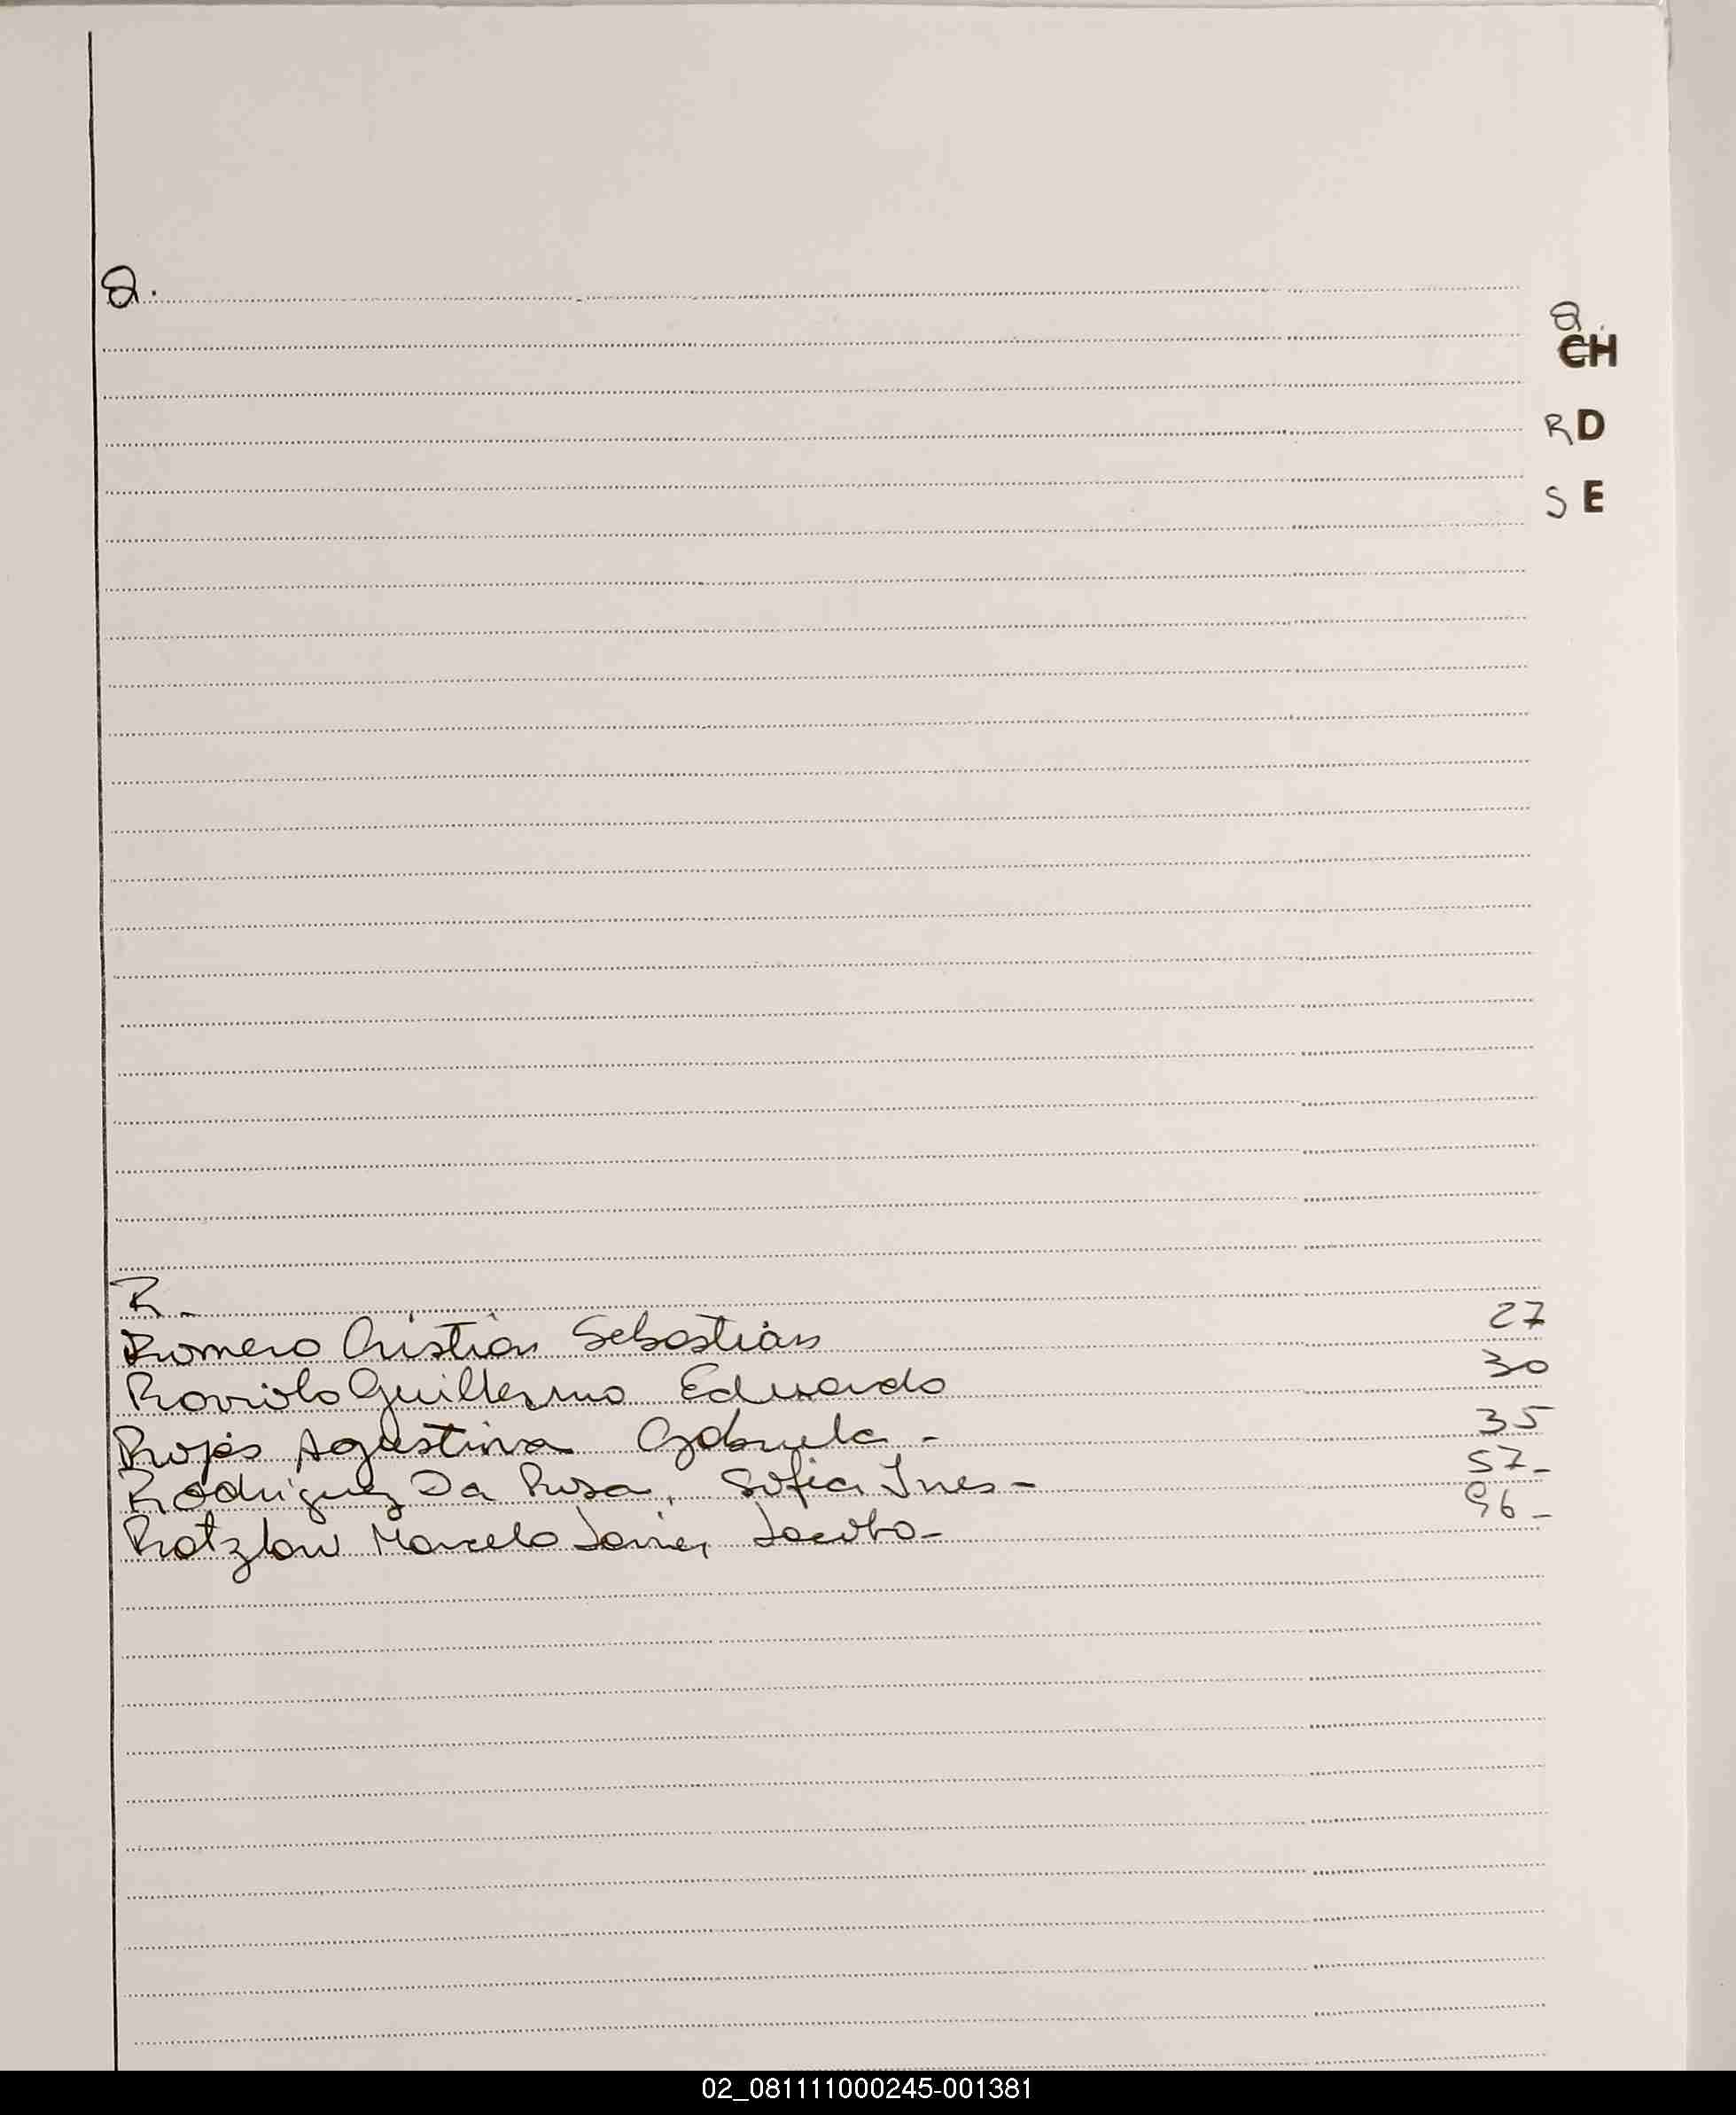 Q.
Q.
CH
R D
S E
R -
Romero Cristian Sebastián 27
Roviolo Guillermo Eduardo 30
Rojas Agustina Gabriela - 35
Rodriguez Da Rosa, Sofia Ines - 57 -
Ratzlow Marcelo Javier Jacobo - 96 -
02_081111000245-001381